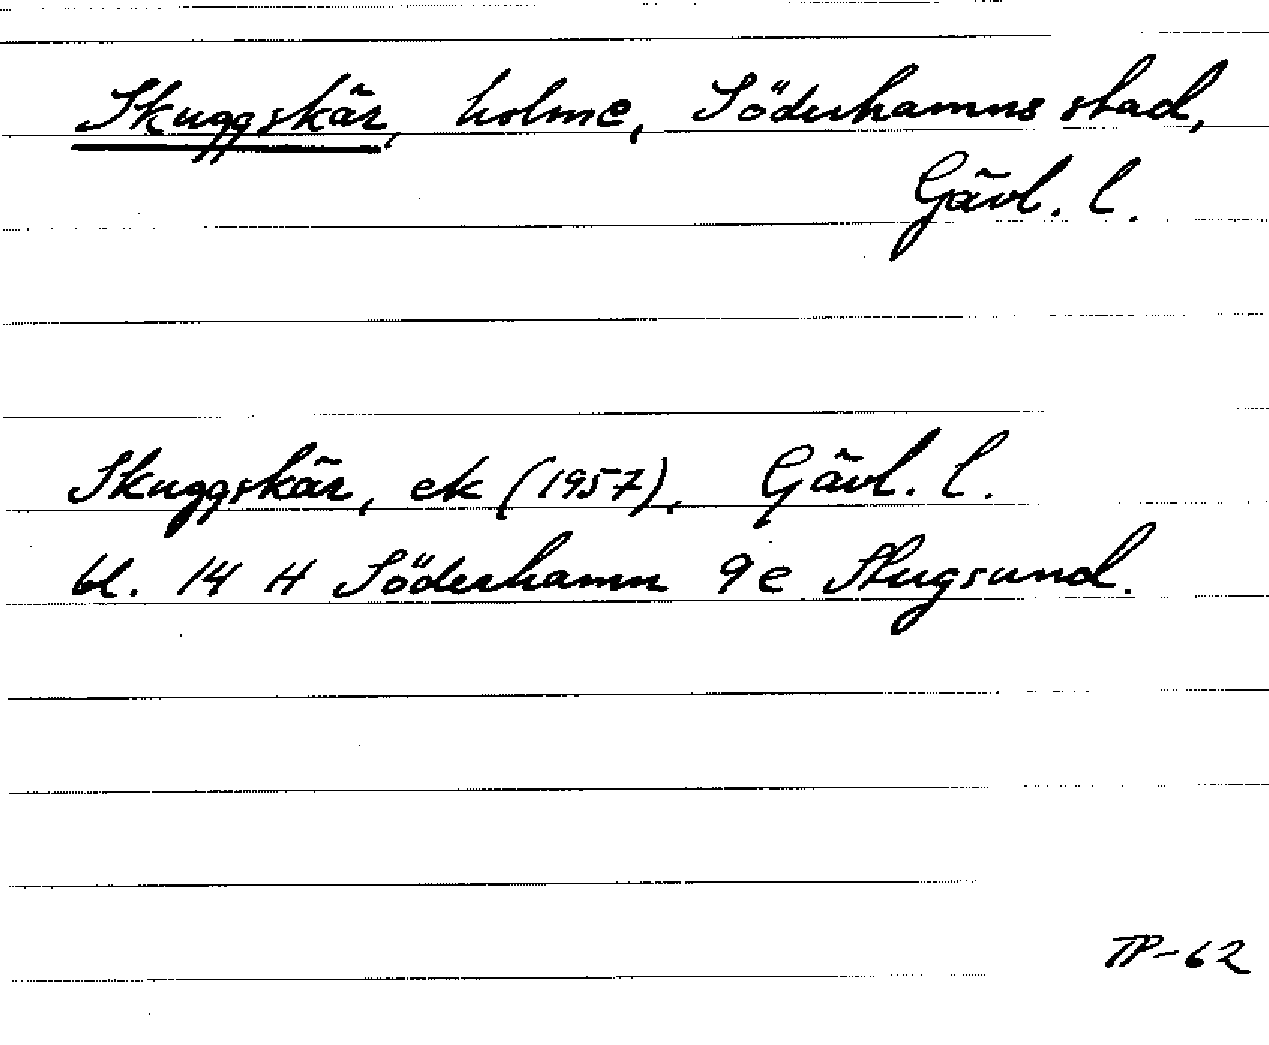 Skuggskär, holme, Söderhamns stad,
Gävl. l.
Skuggskär, ek (1957), Gävl. l.
bl. 14 H Söderhamn 9e Stugsund.
TP-62